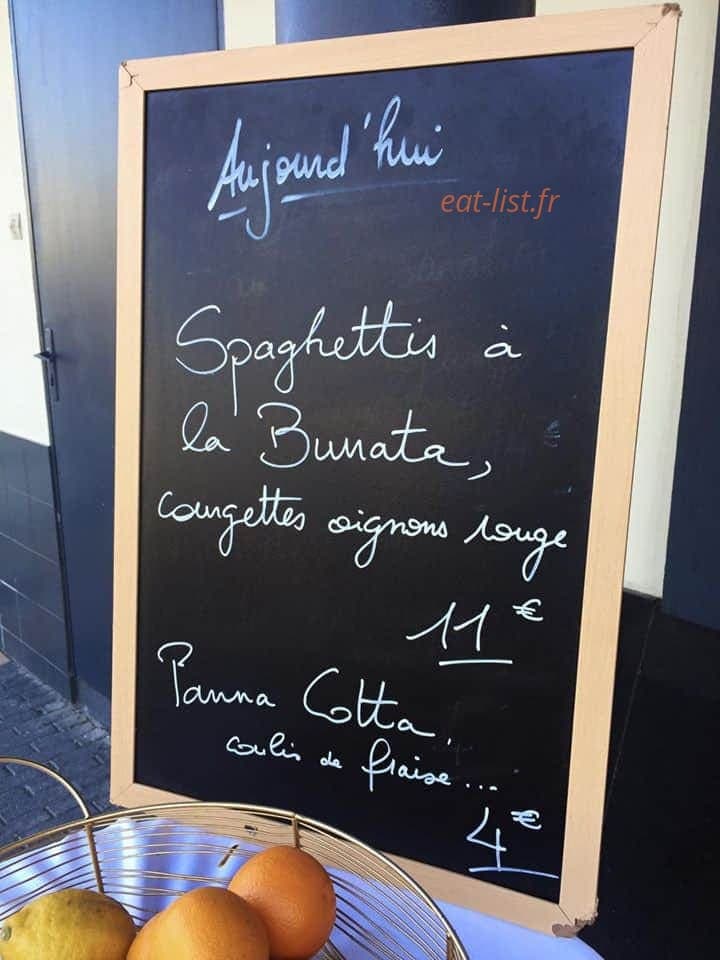 Aujourd'hui
eat-list.fr
Spaghettis à
la Burrata,
courgettes oignons rouge
11 €
Panna Cotta,
coulis de fraise...
4 €